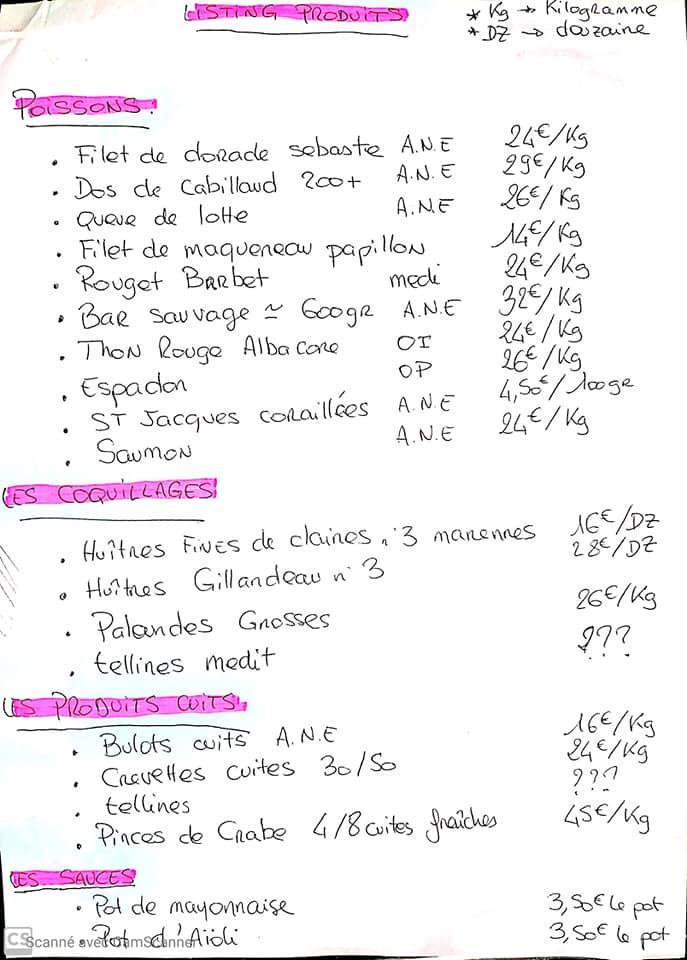 LISTING PRODUITS
* Kg → Kilogramme
* DZ → douzaine
POISSONS:
• Filet de dorade sebaste A.N.E 24€/Kg
• Dos de Cabillaud 200+ A.N.E 29€/Kg
• Queue de lotte A.N.E 26€/Kg
• Filet de maquereau papillon 14€/Kg
• Rouget Barbet medi 24€/Kg
• Bar sauvage ≃ 600gr A.N.E 32€/Kg
• Thon Rouge Albacore OI 24€/Kg
• Espadon OP 26€/Kg
• ST Jacques coraillées A.N.E 4,50€/100gr
• Saumon A.N.E 24€/Kg
LES COQUILLAGES
• Huîtres Fines de claires n°3 marennes 16€/DZ
• Huîtres Gillardeau n°3 28€/DZ
• Palourdes Grosses 26€/Kg
• tellines medit ???
LES PRODUITS CUITS
• Bulots cuits A.N.E 16€/Kg
• Crevettes cuites 30/50 24€/Kg
• tellines ???
• Pinces de Crabe 4/8 cuites fraîches 45€/Kg
LES SAUCES
• Pot de mayonnaise 3,50€ le pot
• Pot d'Aïoli 3,50€ le pot
CS Scanné avec CamScanner